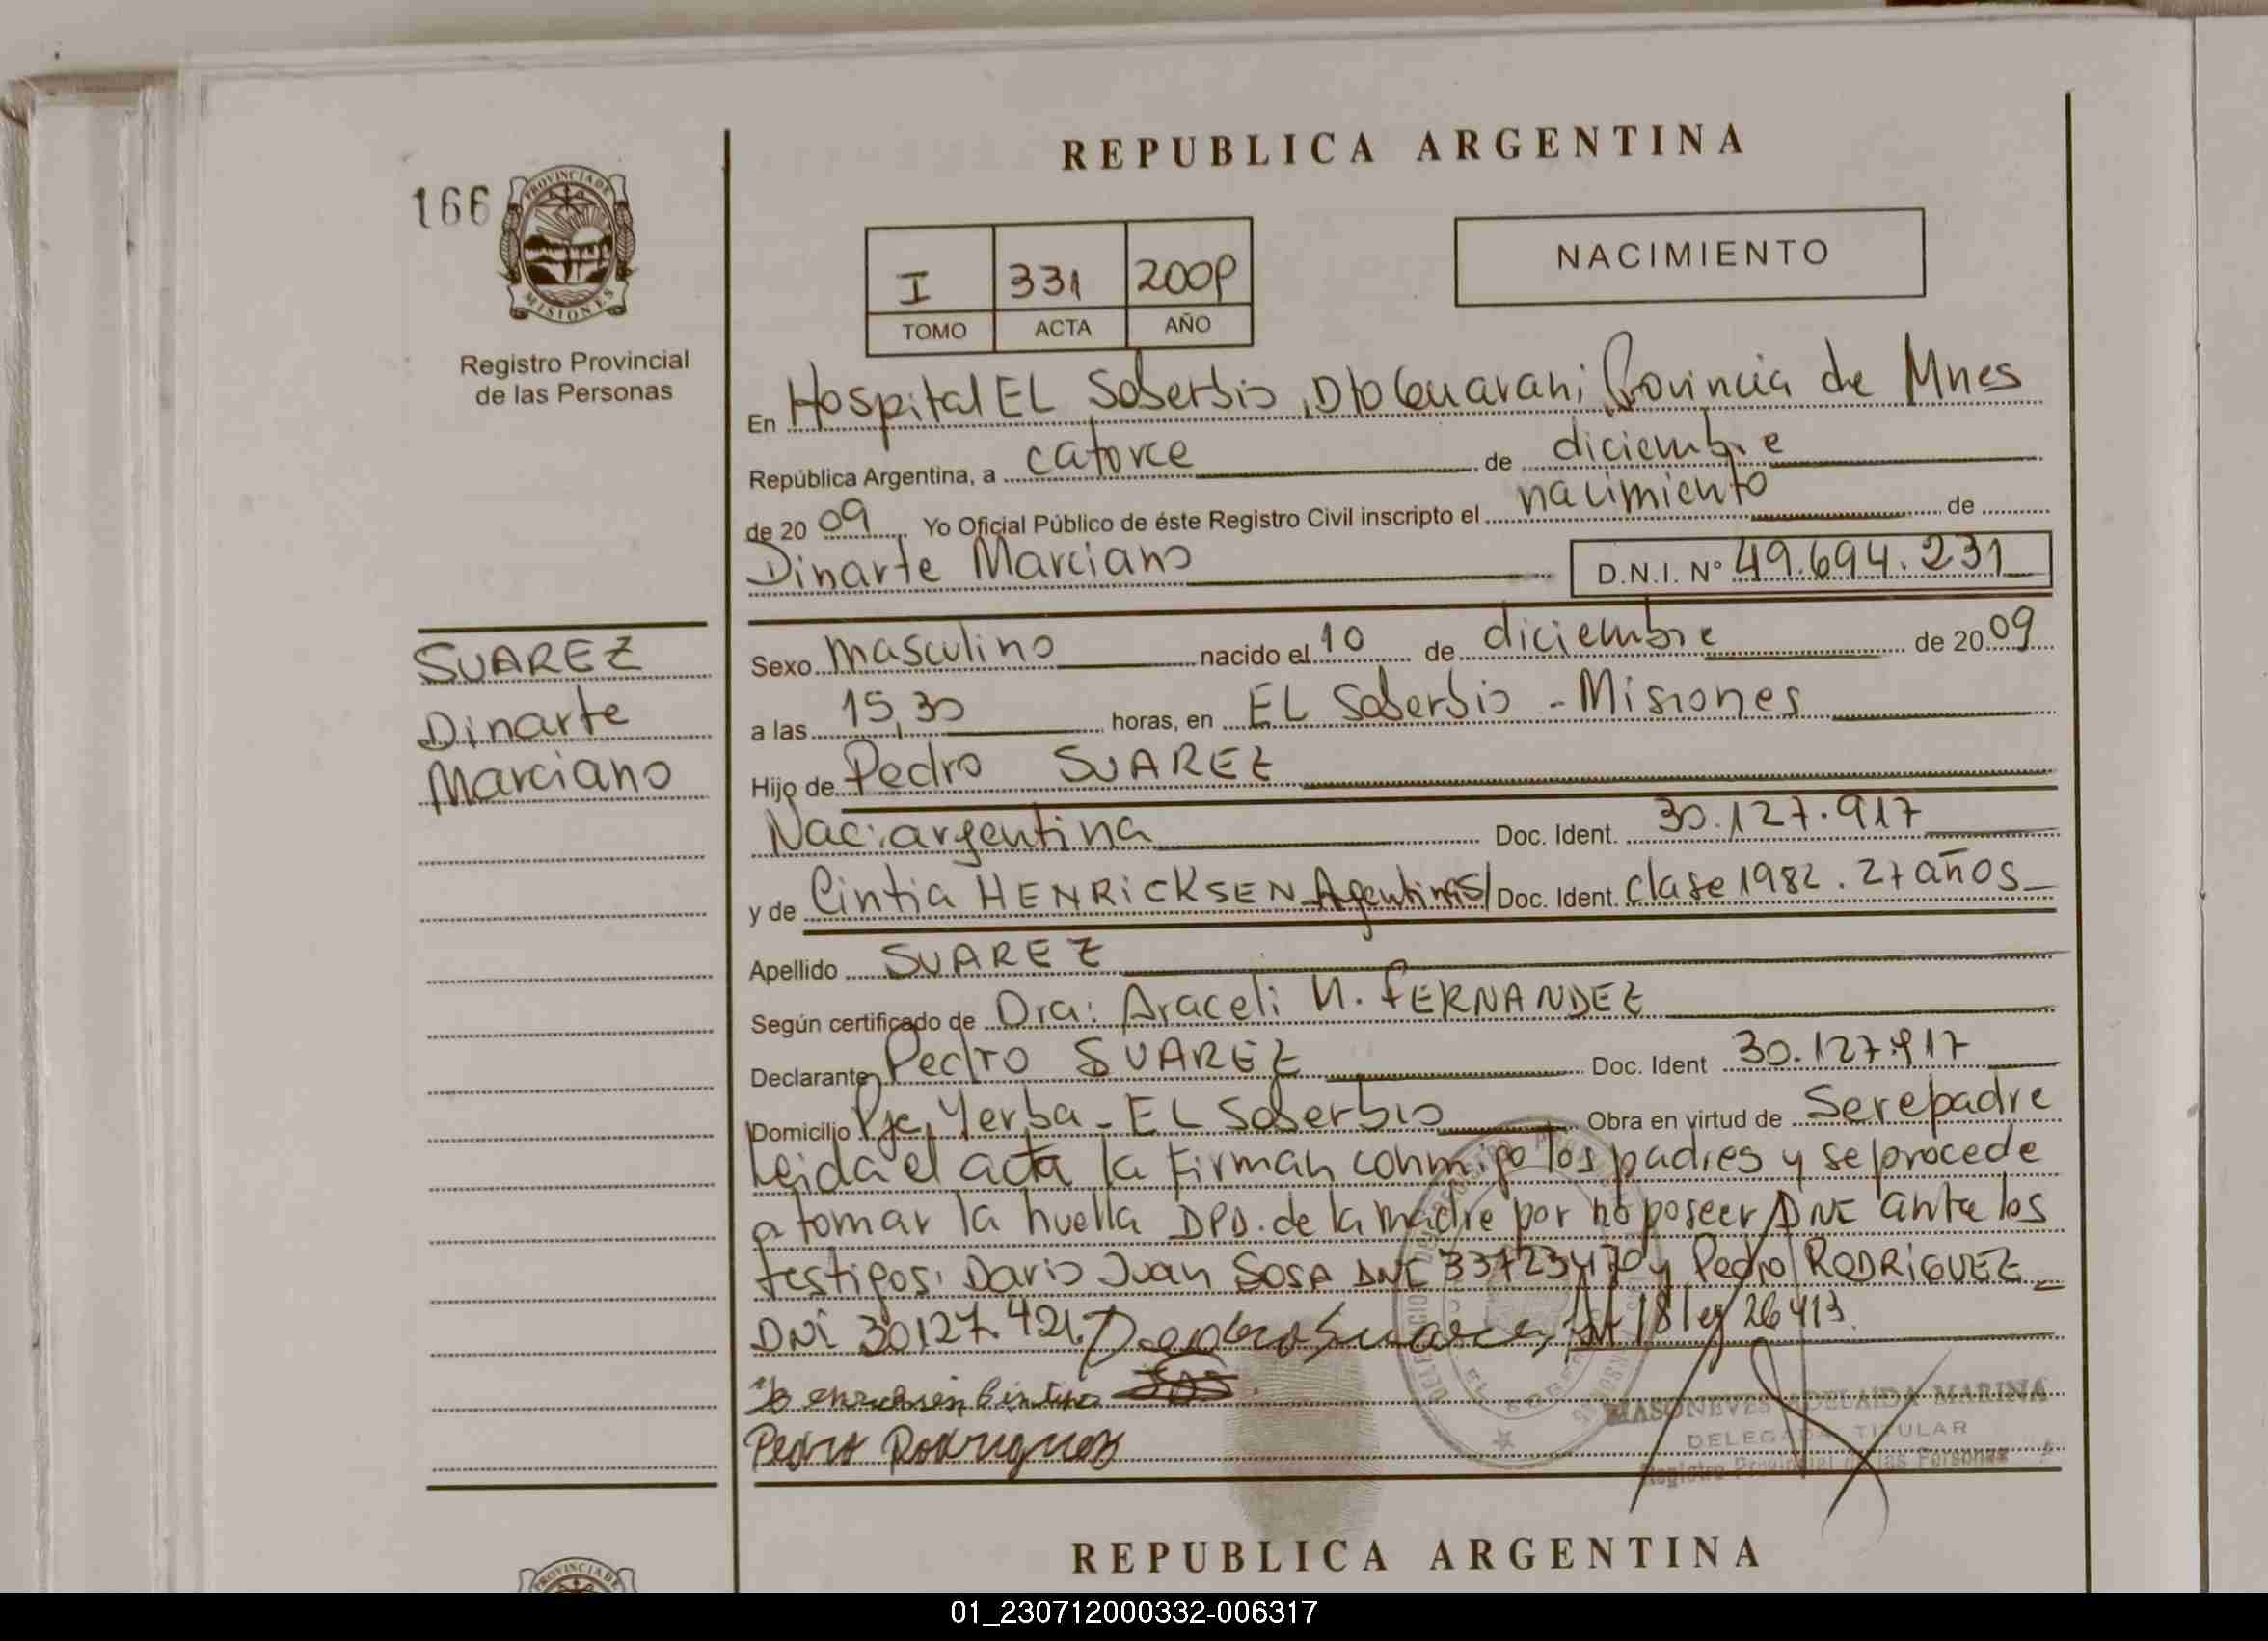 REPUBLICA ARGENTINA
166
PROVINCIA DE
MISIONES
Registro Provincial
de las Personas
I 331 2009
TOMO ACTA AÑO
NACIMIENTO
En Hospital EL Soberbio, Dto Guarani, Provincia de Mnes
República Argentina, a catorce de diciembre
de 2009 Yo Oficial Público de éste Registro Civil inscripto el nacimiento de
Dinarte Marciano D.N.I. Nº 49.694.231
SUAREZ
Dinarte
Marciano
Sexo masculino nacido el 10 de diciembre de 2009
a las 15,30 horas, en EL Soberbio - Misiones
Hijo de Pedro SUAREZ
Nac: argentina Doc. Ident. 30.127.917
y de Cintia HENRICKSEN Doc. Ident. clase 1982. 27 años
Apellido SUAREZ
Según certificado de Dra: Araceli N. FERNANDEZ
Declarante Pedro SUAREZ Doc. Ident 30.127.917
Domicilio Pje. Yerba - EL Soberbio Obra en virtud de Ser el padre
Leida el acta la firman conmigo los padres y se procede
a tomar la huella DPD. de la madre por no poseer DNI ante los
testigos: Dario Juan SOSA DNI 33723470 y Pedro RODRIGUEZ
DNI 30127.421. Pedro Suarez, Art 18 ley 26413.
Pedro Rodriguez
MASONEVES ADELAIDA MARINA
DELEGADA TITULAR
Registro Provincial de las Personas
REPUBLICA ARGENTINA
PROVINCIA DE
01_230712000332-006317